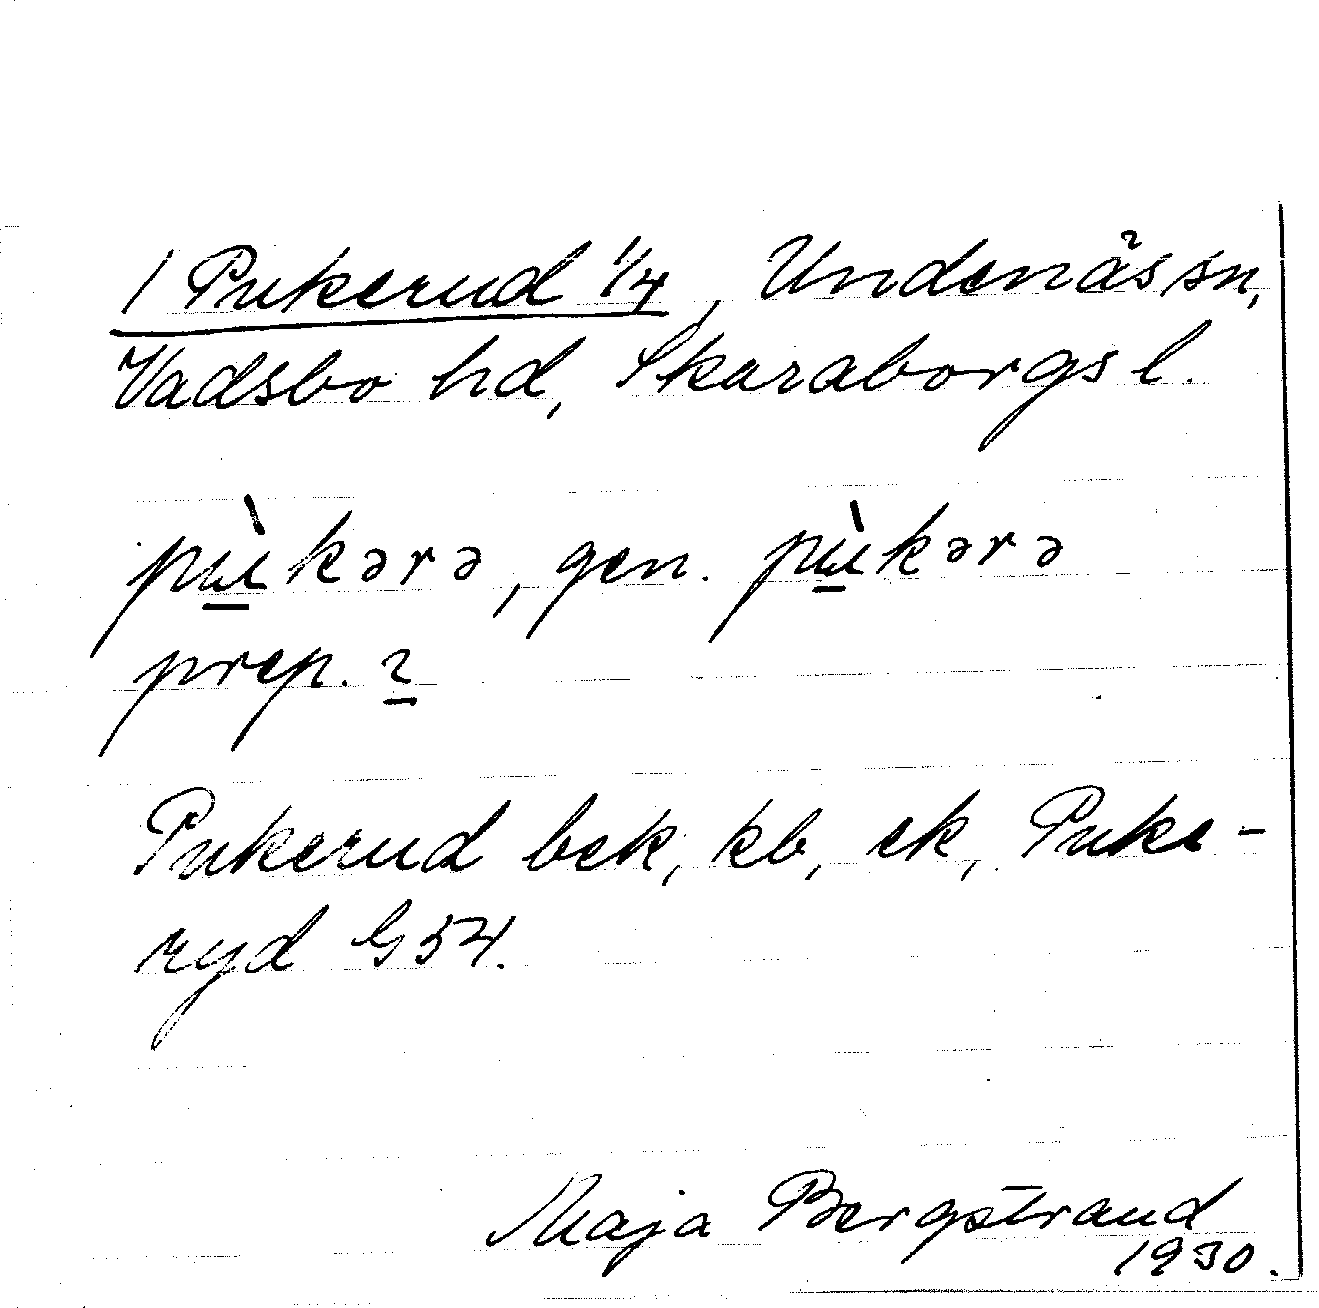 1 Pukerud 1/4, Undenäs sn,
Vadsbo hd, Skaraborgs l.
pùkərə, gen. pùkərə
prep. 2
Pukerud bek, kb, ek, Puke-
ryd G 54.
Maja Bergstrand
1930.